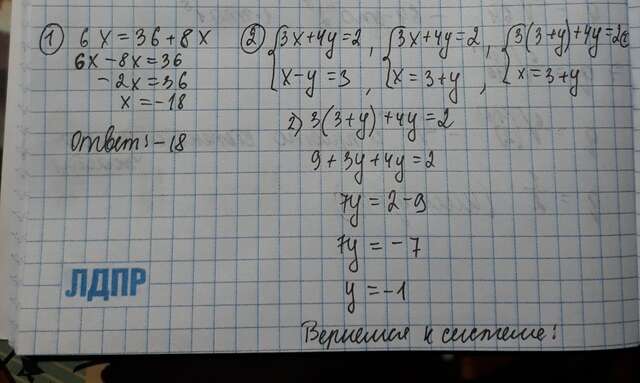 ① 6x = 36 + 8x
6x - 8x = 36
- 2x = 36
x = -18
Ответ: -18
② {3x+4y=2, {3x+4y=2, {3(3+y)+4y=2
x-y=3, x=3+y, x=3+y
1) 3(3+y)+4y=2
9+3y+4y=2
7y = 2-9
7y = -7
y = -1
Вернемся к системе:
ЛДПР